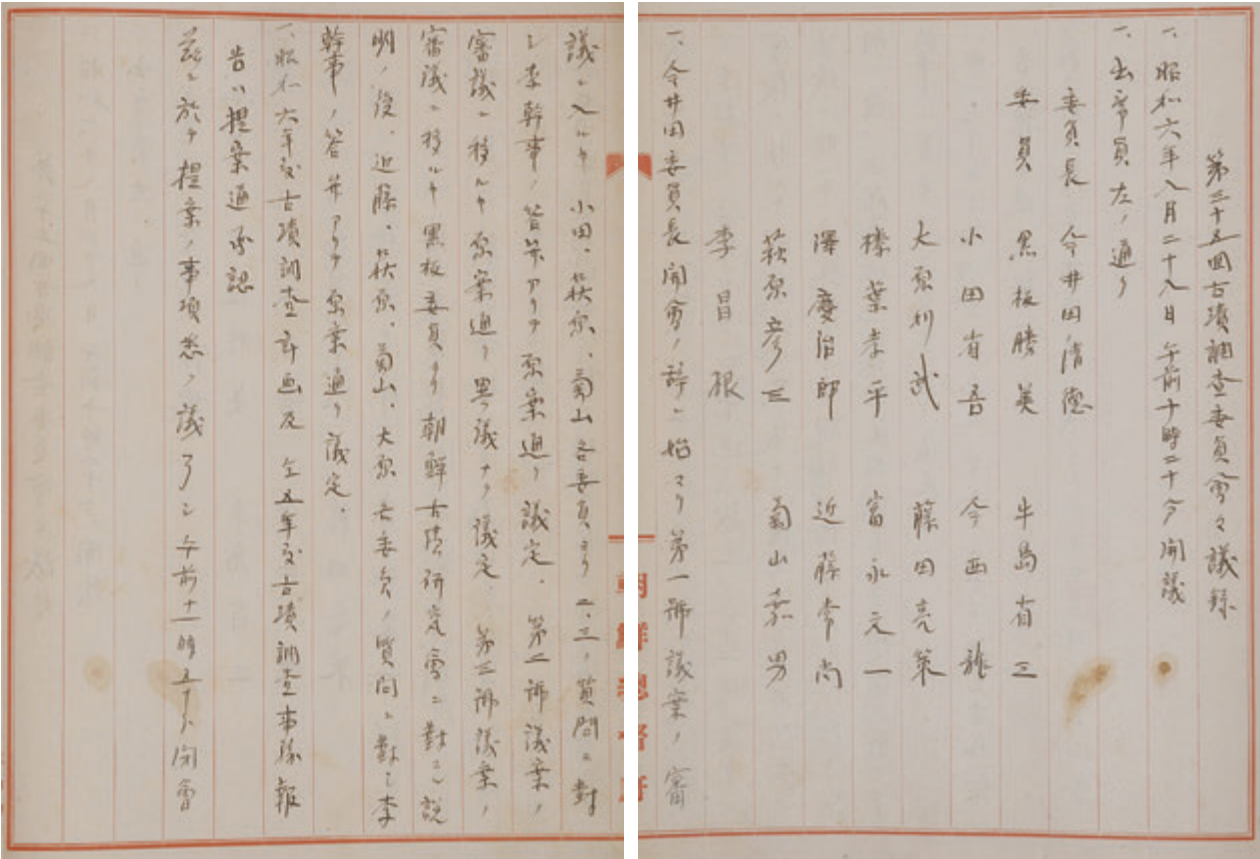 第三十五回古蹟調査委員會々議録
一、昭和六年八月二十九日午前十時二十分開議
一、出席員左ノ通リ
委員長 今井田淸德
委員 黒板勝美 牛島省三
小田省吾 今西龍
大原利武 藤田亮策
榛葉孝平 富永文一
澤慶治郎 近藤常尚
萩原彦三 菊山嘉男
李昌根
一、今井田委員長開會ノ辞ニ始マリ第一號議案ノ審
議ニ入ルヤ小田、萩原、菊山各委員ヨリ二、三ノ質問ニ對
シ李幹事ノ答弁アリテ原案通リ議定、第二號議案ノ
審議ニ移ルヤ原案通リ異議ナク議定、第三號議案ノ
審議ニ移ルヤ黒板委員ヨリ朝鮮古蹟研究會ニ對スル説
明ノ後、近藤、萩原、菊山、大原各委員ノ質問ニ對シ李
幹事ノ答弁アリテ原案通リ議定、
一、昭和六年度古蹟調査計画及仝五年度古蹟調査事務報
告ハ提案通承認
茲ニ於テ提案ノ事項悉ク議了シ午前十一時五十分閉會
朝鮮總督府